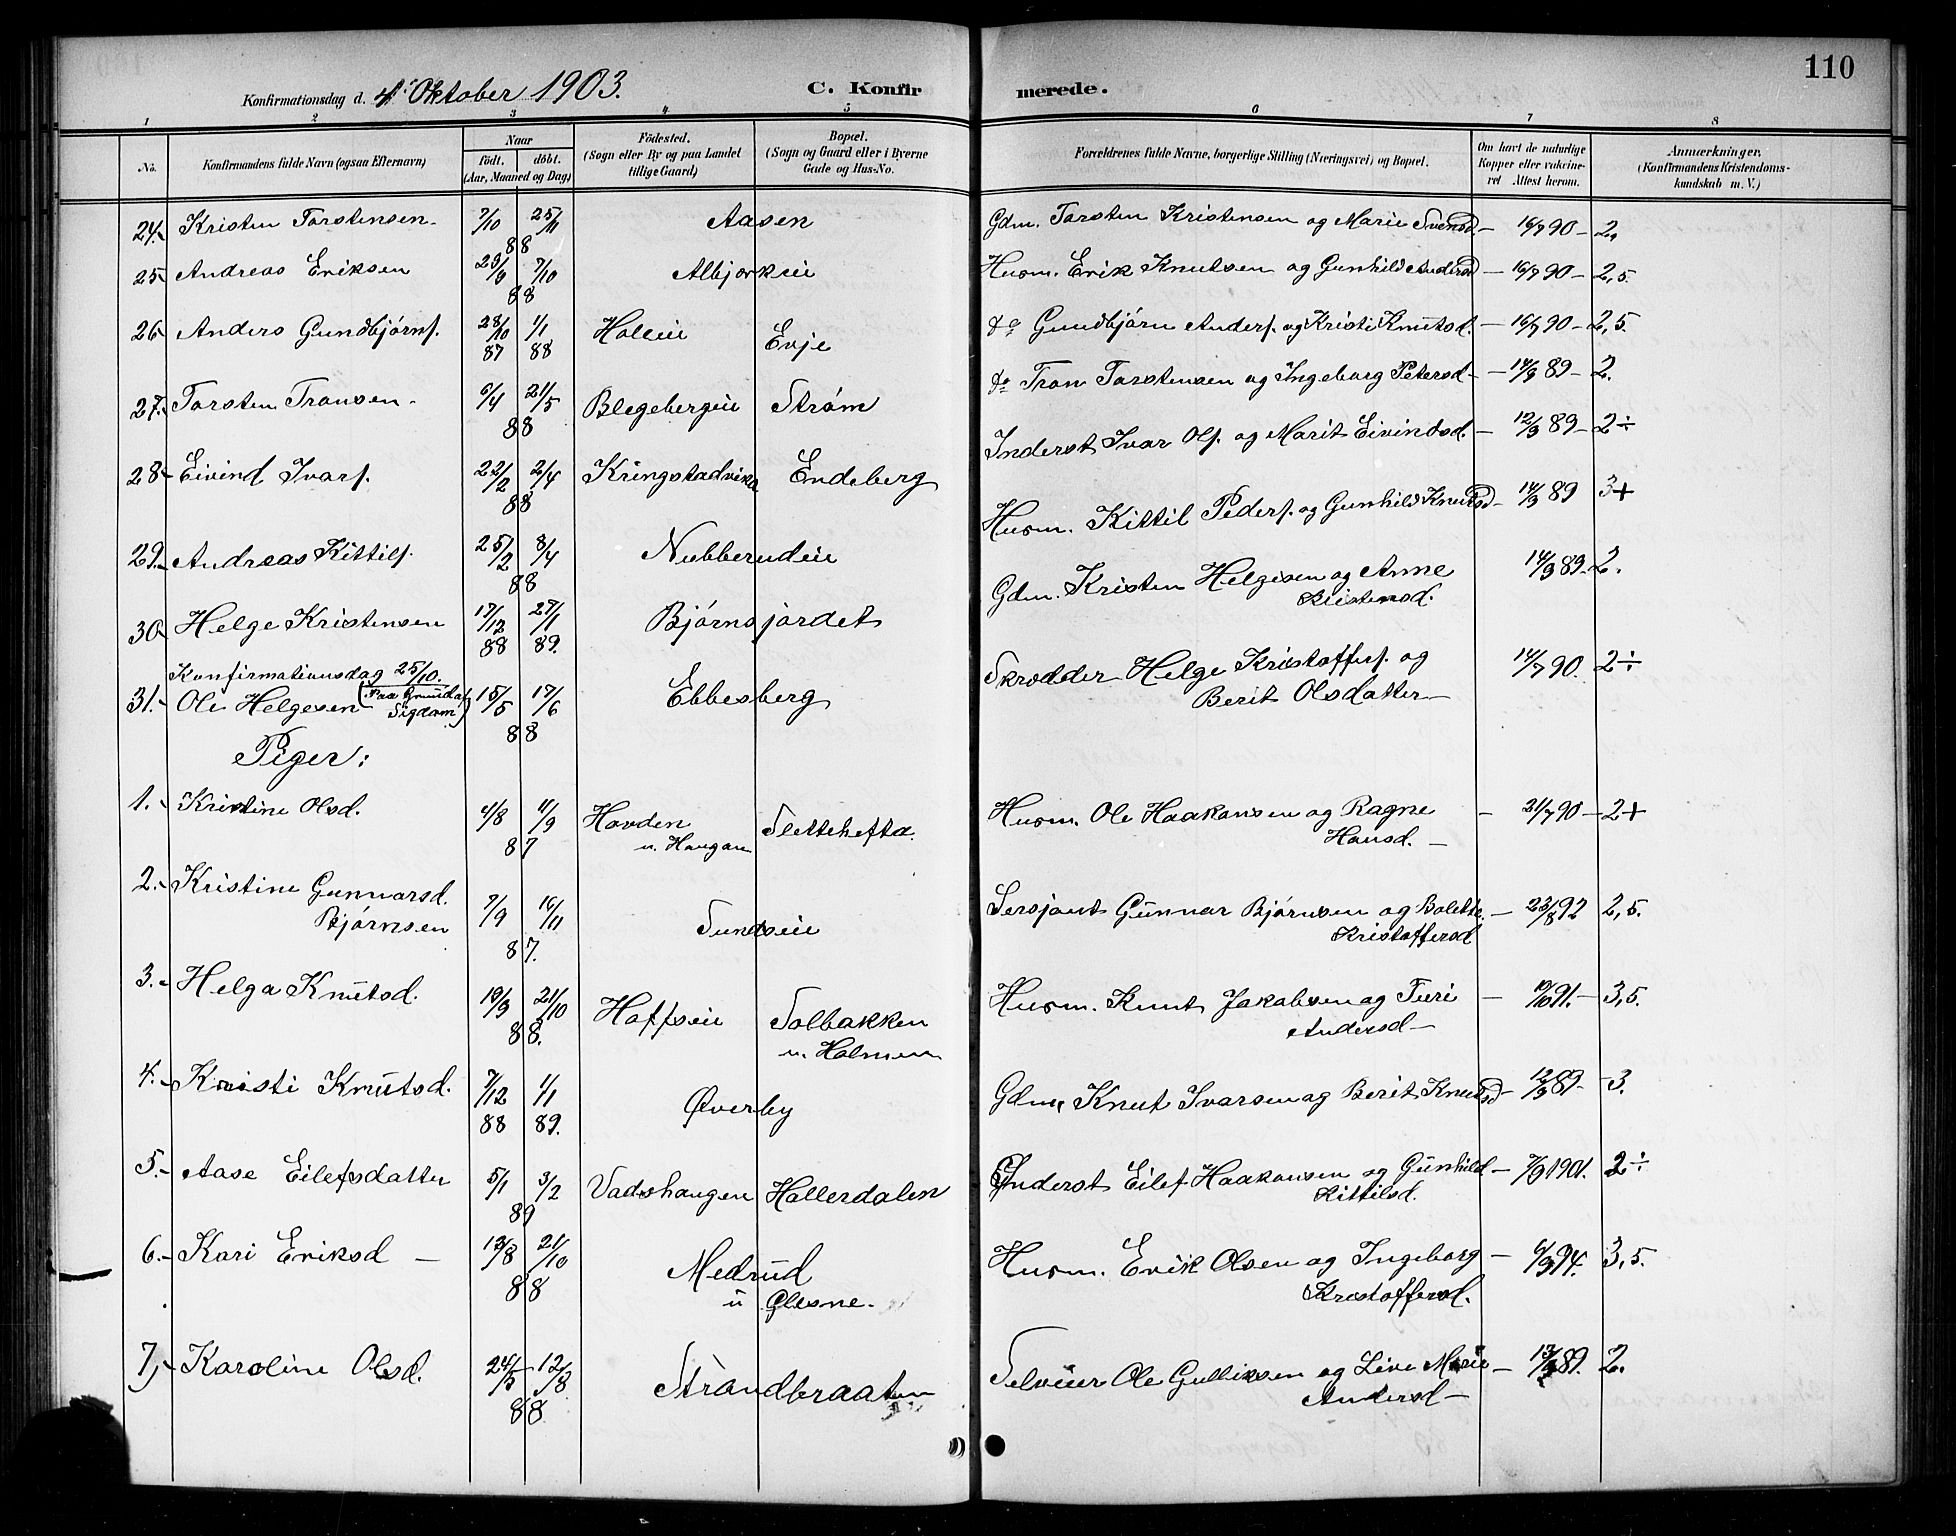 110
Konfirmationsdag d. 4' Oktober 1903. C. Konfirmerede.
1 2 3 4 5 6 7 8
No. Konfirmandens fulde Navn (ogsaa Efternavn) Naar födt. döbt. (Aar, Maaned og Dag) Födested. (Sogn eller By og paa Landet tillige Gaard) Bopæl. (Sogn og Gaard eller i Byerne Gade og Hus-No. Forældrenes fulde Navne, borgerlige Stilling (Næringsvei) og Bopæl. Om havt de naturlige Kopper eller vakcineret Attest herom. Anmærkninger, (Konfirmandens Kristendomskundskab m. V.)
24.- Kristen Torstensen- 7/10 25/11 88 Aasen Gdm. Torsten Kristensen og Marie Svensd - 16/7 90 - 2.
25- Andreas Eriksen 23/9 7/10 88 Albjorkeie Husm. Erik Knutsen og Gunhild Andersd - 16/7 90 - 2,5.
26- Anders Gundbjórns. 28/10 87 1/1 88 Holeie Evje do Gundbjórn Anders. og Kristi Knutsd. - 16/7 90 - 2,5.
27.- Torsten Tronsen- 6/4 21/5 88 Blegebergeie Stróm do Tron Torstensen og Ingeborg Petersd - 14/9 89 - 2.
28- Eivind Ivars. 22/2 2/4 88 Kringstadvika Endeberg Inderst Ivar Ols. og Marit Eivindsd. - 12/9 89 - 2÷
29.- Andreas Kittils. 25/2 8/4 88 Nubberudeie Husm. Kittil Peders. og Gunhild Knutsd - 14/9 89 3+
30- Helge Kristensen 17/12 88 27/1 89. Bjórnsjordet Gdm. Kristen Helgesen og Anne Kristensd. 14/9 89. 2.
Konfirmationsdag 25/10.
31.- Ole Helgesen (paa Sigdam) 15/5 17/6 88 Ebbesberg Skrodder Helge Kristoffers. og Berit Olsdatter - 14/7 90. 2÷
Piger:
1.- Kristine Olsd. 4/8 11/9 87 Hovden u. Haugan Slettehefta. Husm. Ole Haakonsen og Ragne Hansd. - 21/7 90 - 2+
2.- Kristine Gunnarsd. Bjórnsen 7/9 16/11 87. Sundseie Sersjant Gunnar Bjórnsen og Bolette Kristoffersd - 23/8 92 2,5.
3.- Helga Knutsd. 19/9 21/10 88. Hoffseie Solbakken u. Holmen Husm. Knut Jakobsen og Turi Andersd - 91. - 3,5.
4.- Kristi Knutsd. 7/12 88 1/1 89. Øverby Gdm. Knut Ivarsen og Berit Knutsd - 12/9 89 - 3.
5.- Aase Eilefsdatter 5/1 3/2 89 Vadshaugen Hallerdalen Inderst Eilef Haakonsen og Gunhild Kittilsd. - 7/9 1901. 2÷
6.- Kari Eriksd - 12/8 21/10 88 Medrud u Glesne. Husm. Erik Olsen og Ingeborg Kristoffersd. - 6/9 94. 3,5.
7,- Karoline Olsd. 24/5 12/8 88 Strandbraaten Selveier Ole Gulliksen og Live Marie Andersd - 13/9 89. 2.